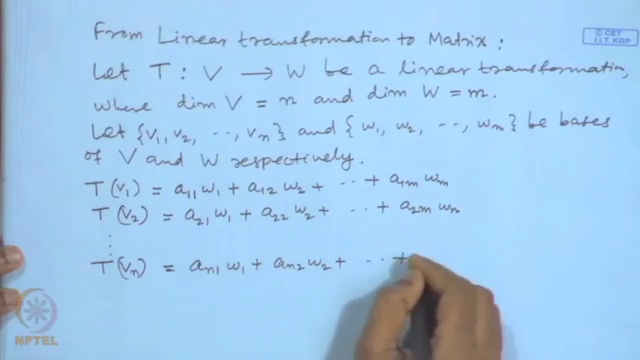 © CET
I.I.T. KGP
From Linear transformation to Matrix :
Let T : V → W be a linear transformation,
where dim V = n and dim W = m.
Let {v₁, v₂, ··, vₙ} and {w₁, w₂, ··, wₘ} be bases
of V and W respectively.
T(v₁) = a₁₁w₁ + a₁₂w₂ + ·· + a₁ₘwₘ
T(v₂) = a₂₁w₁ + a₂₂w₂ + ·· + a₂ₘwₙ
⋮
T(vₙ) = aₙ₁w₁ + aₙ₂w₂ + ·· +
NPTEL